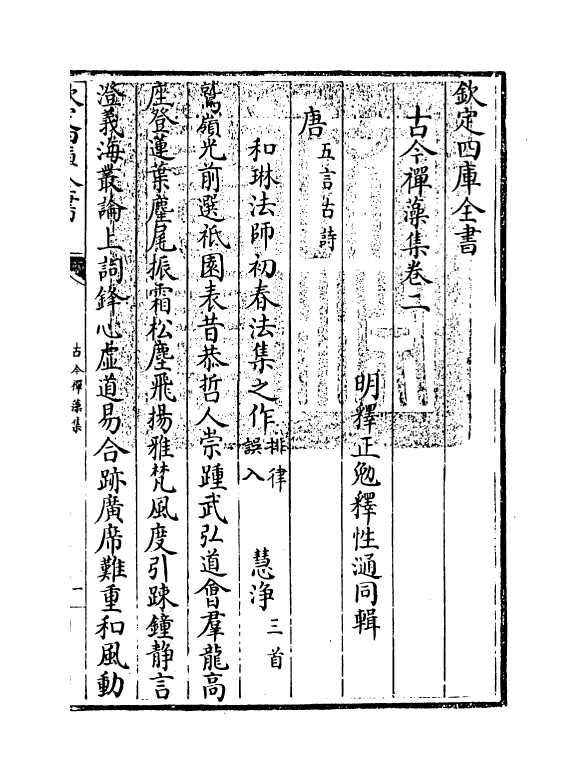 欽定四庫全書
古今禪藻集卷二
明釋正勉釋性㴋同輯
唐五言古詩
和琳法師初春法集之作排律誤入 慧浄三首
鷲嶺光前選祇園表昔恭哲人崇踵武弘道會羣龍高
座登蓮葉麈尾振霜松塵飛揚雅梵風度引踈鐘静言
澄義海叢論上詞鋒心虚道易合跡廣席難重和風動
古今禪藻集
一